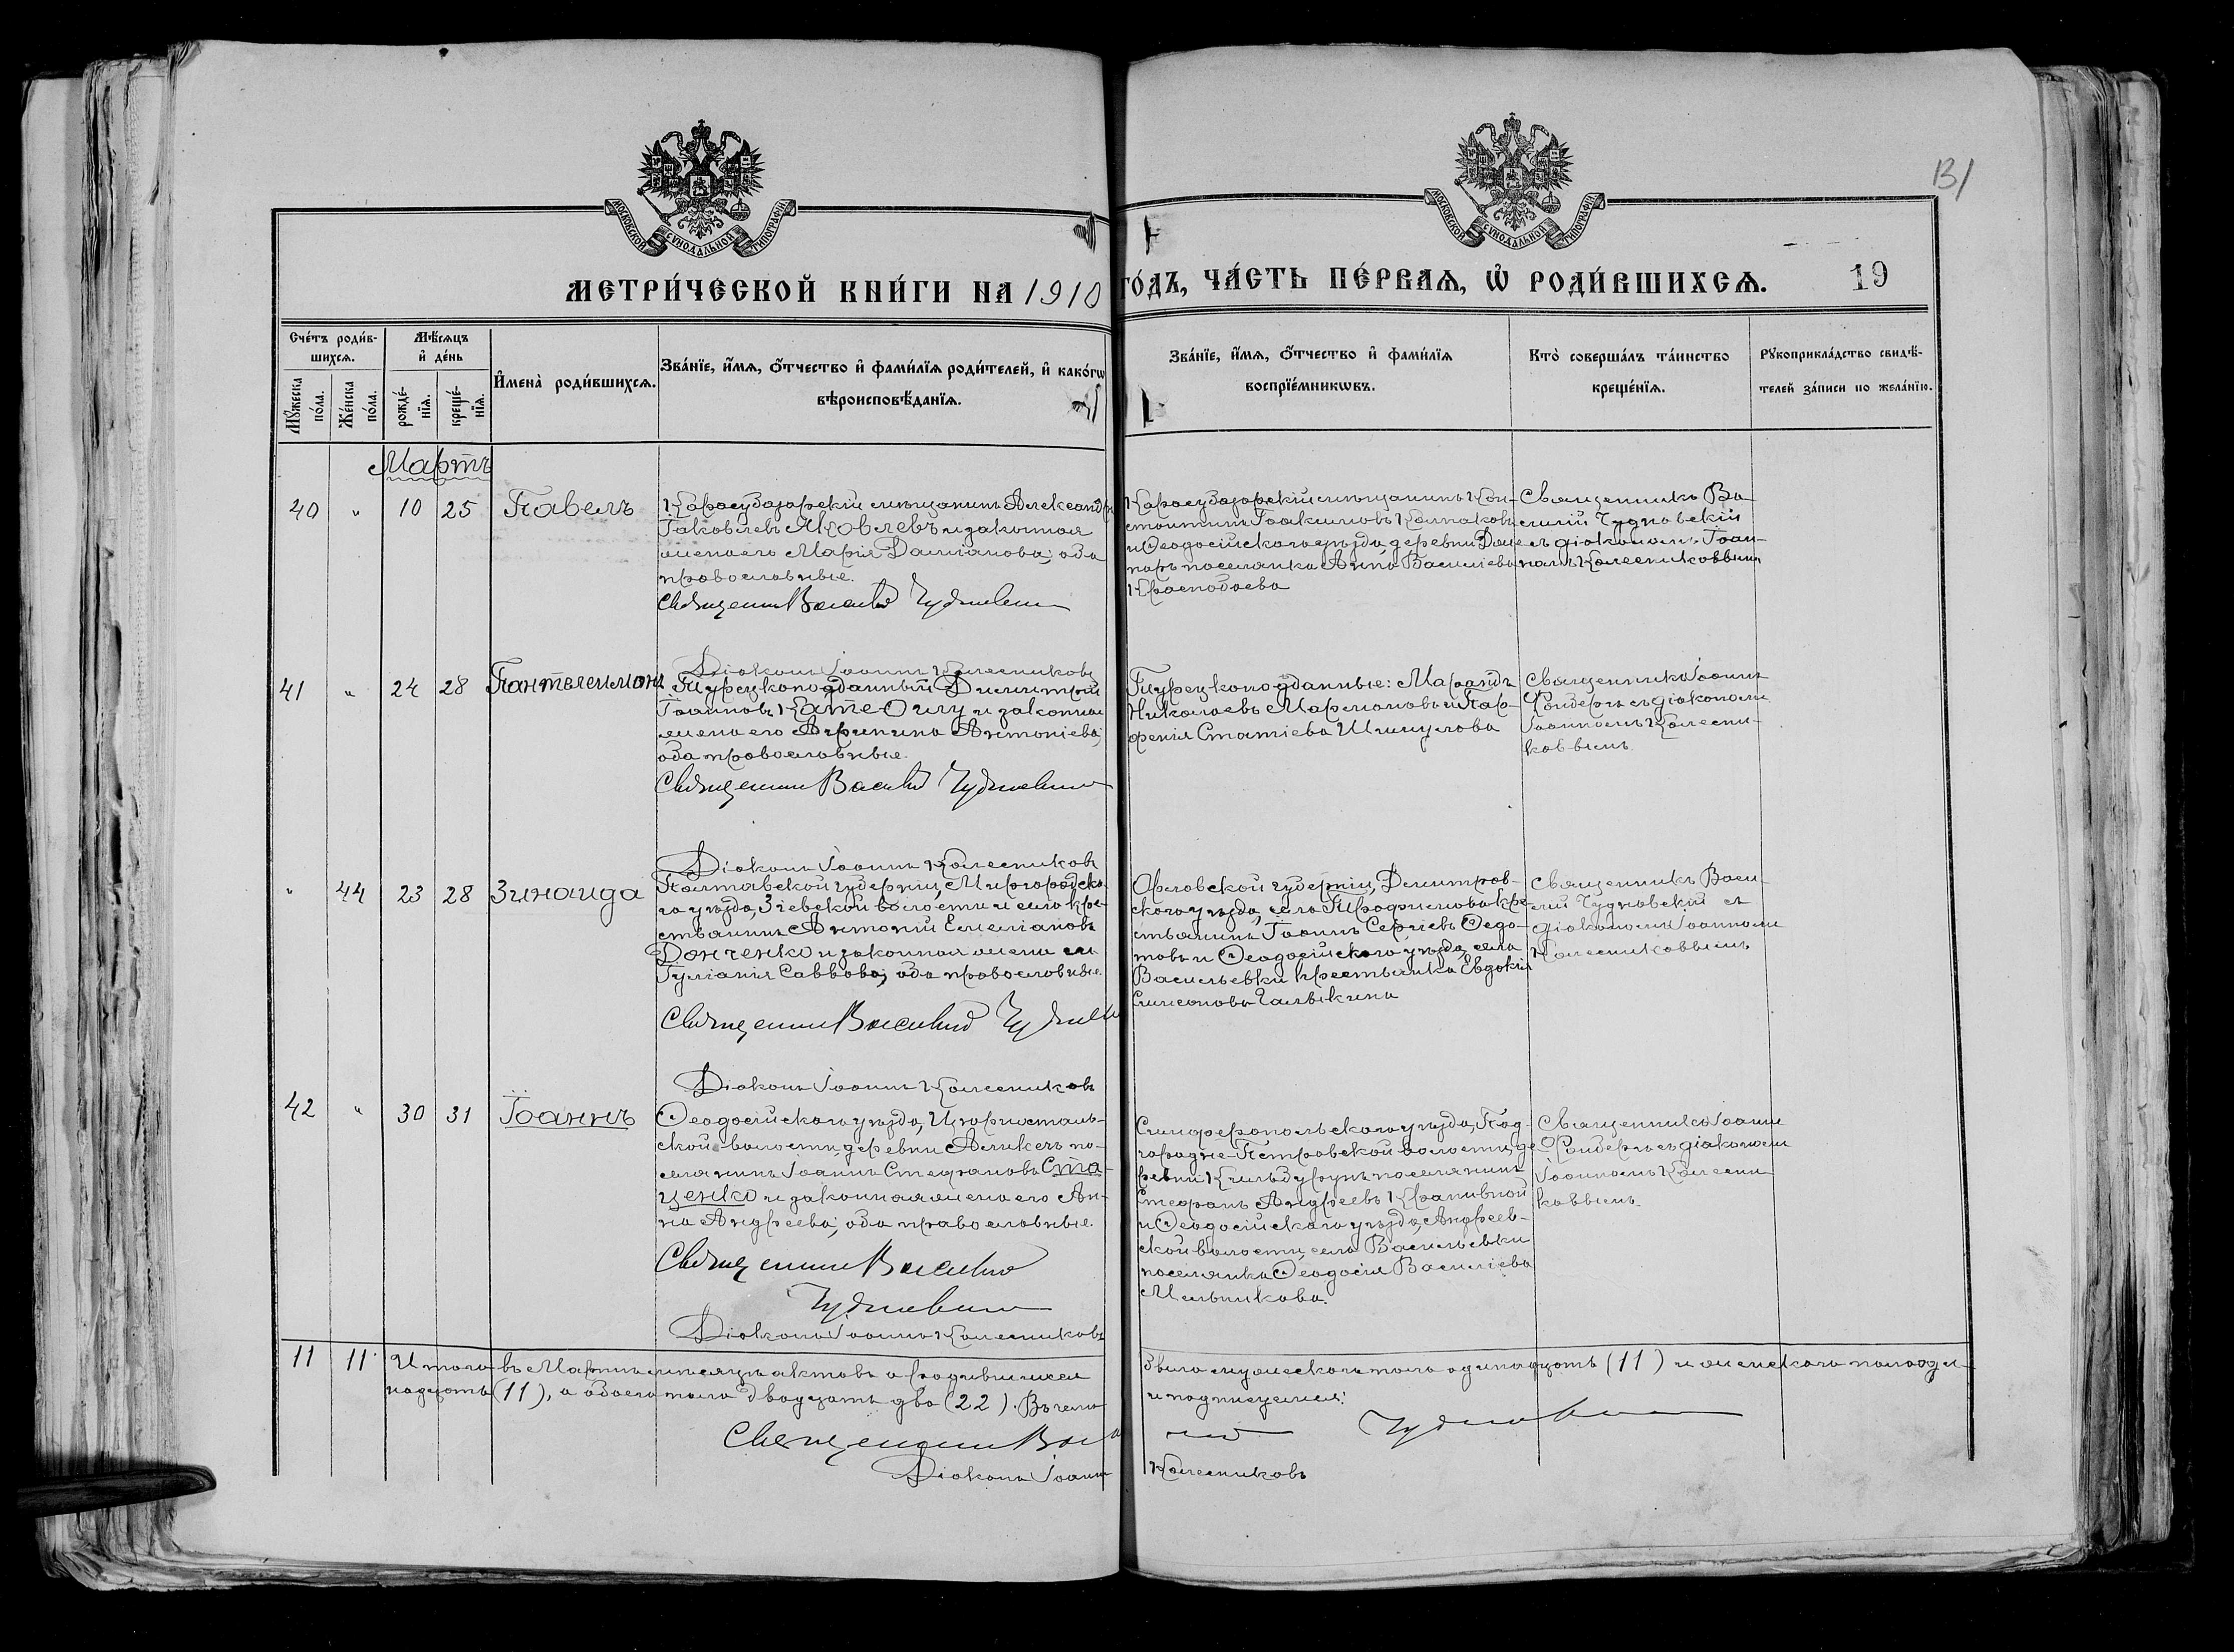 131
МОСКОВСКОЙ СѴНОДАЛЬНОЙ ТИПОГРАФІИ
МОСКОВСКОЙ СѴНОДАЛЬНОЙ ТИПОГРАФІИ
МЕТРИ́ЧЕСКОЙ КНИ́ГИ НА 1910 ГО́ДЪ, ЧА́СТЬ ПЕ́РВАѦ, Ѡ҆ РОДИ́ВШИХСѦ. 19
Сче́тъ роди́в-
шихсѧ.
Мѣ́сѧцъ
и҆ де́нь
Мꙋ́жеска
по́ла.
Же́нска
по́ла.
рожде́-
нїѧ.
креще́-
нїѧ.
И҆мена̀ роди́вшихсѧ.
Зва́нїе, и҆́мѧ, ѻ҆́тчество и҆ фами́лїѧ роди́телей, и҆ како́гѡ
вѣроисповѣ́данїѧ.
Зва́нїе, и҆́мѧ, ѻ҆́тчество и҆ фами́лїѧ
воспрїе́мникѡвъ.
Кто̀ соверша́лъ та́инство
креще́нїѧ.
Рꙋкоприкла́дство свидѣ́-
телей за́писи по жела́нїю.
Мартъ
40 " 10 25 Павелъ
Карасубазарскій мѣщанинъ Александръ
Іаковлевъ Яковлевъ и законная
жена его Марія Даміанова; оба
православные.
Священникъ Василій Чудновскій
Діаконъ Іоаннъ Колесниковъ
Карасубазарскій мѣщанинъ Кон-
стантинъ Іоакимовъ Колпаковъ
и Ѳеодосійскаго уѣзда, деревни
поселянка Анна Василіева
Священникъ Ва-
силій Чудновскій
съ діакономъ Іоан-
номъ Колесниковымъ
41 " 24 28 Пантелеимонъ
Турецкоподданный Димитрій
Іоанновъ Кате-Оглу и законная
жена его Агрипина Антоніева;
оба православные.
Священникъ Василій Чудновскій
Діаконъ Іоаннъ Колесниковъ
Турецкоподданные:
Николаевъ и Пар-
ѳенія Статіева
Священникъ Іоаннъ
съ діакономъ
Іоанномъ Колесни-
ковымъ.
" 44 23 28 Зинаида
Полтавской губерніи, Миргородска-
го уѣзда, волости и села кре-
стьянинъ Антоній Емеліановъ
Донченко и законная жена его
Іуліанія Саввова; оба православные.
Священникъ Василій Чудновскій
Діаконъ Іоаннъ Колесниковъ
Орловской губерніи, Димитров-
скаго уѣзда, села кре-
стьянинъ Іоаннъ Сергіевъ Ѳедо-
товъ и Ѳеодосійскаго уѣзда, села
Васильевки крестьянка Евдокія
Симеонова Галыкина
Священникъ Васи-
лій Чудновскій съ
діакономъ Іоанномъ
Колесниковымъ
42 " 30 31 Іоаннъ
Ѳеодосійскаго уѣзда, Цюрихталь-
ской волости, деревни по-
селянинъ Іоаннъ Стефановъ Ста-
ценко и законная жена его Ан-
на Андреева; оба православные.
Священникъ Василій
Чудновскій
Діаконъ Іоаннъ Колесниковъ
Симферопольскаго уѣзда, Под-
городне-Петровской волости, де-
ревни поселянинъ
Стефанъ Андреевъ Крапивной
и Ѳеодосійскаго уѣзда, Андреев-
ской волости, села Васильевки
поселянка Ѳеодосія Василіева
Мельникова.
Священникъ Іоаннъ
съ діакономъ
Іоанномъ Колесни-
ковымъ.
11 11 Итого въ Мартѣ мѣсяцѣ актовъ о родившихся было мужескаго пола одинадцать (11) и женскаго пола оди-
надцать (11), а обоего пола двадцать два (22). Въ чемъ и подписуемся:
Священникъ Василій Чудновскій
Діаконъ Іоаннъ Колесниковъ